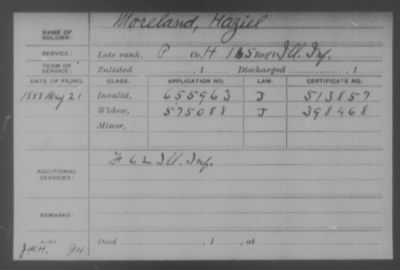 NAME OF SOLDIER: Moreland, Haziel
SERVICE: Late rank, P Co. H 165 Reg't Ill. Inf.
TERM OF SERVICE: Enlisted , 1 Discharged , 1
DATE OF FILING. CLASS. APPLICATION NO. LAW. CERTIFICATE NO.
1888 May 21 Invalid, 655963 J 513857
Widow, 575088 J 398468
Minor,
ADDITIONAL SERVICES: F 62 Ill. Inf.
REMARKS:
Died , 1 , at